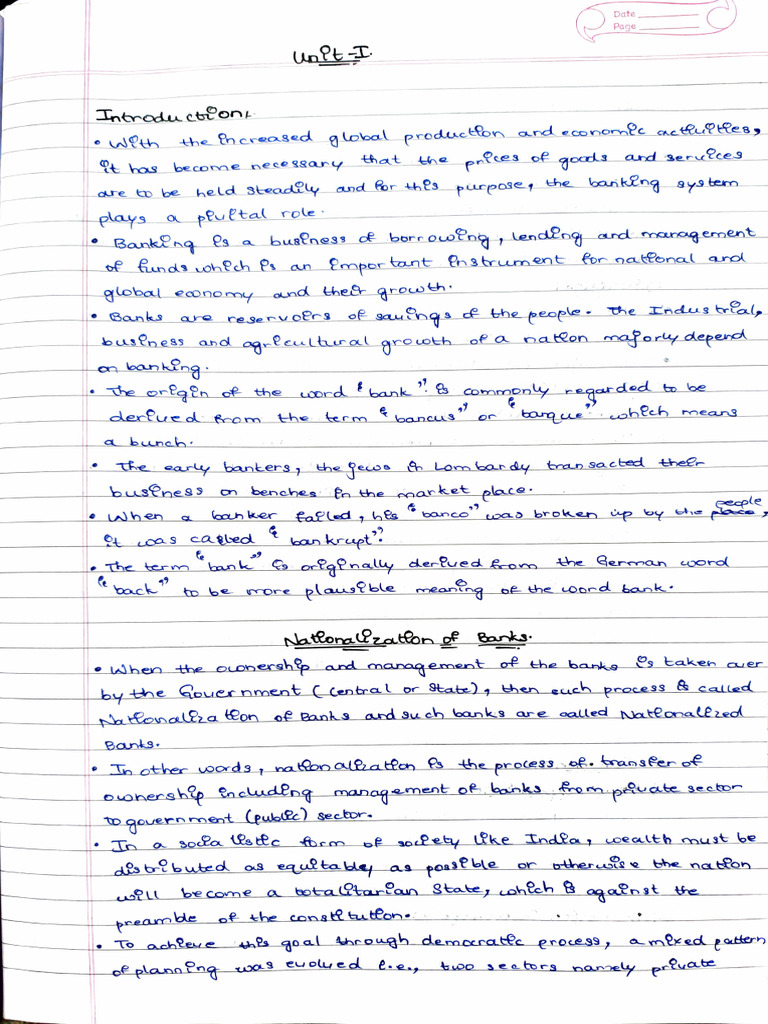 Date
Page
Unit-I.
Introduction,
• With the increased global production and economic activities,
it has become necessary that the prices of goods and services
are to be held steadily and for this purpose, the banking system
plays a pivital role.
• Banking is a business of borrowing, lending and management
of funds which is an important instrument for national and
global economy and their growth.
• Banks are reservoirs of savings of the people. The Industrial,
business and agricultural growth of a nation majorly depend
on banking.
• The origin of the word "bank" is commonly regarded to be
derived from the term "bancus" or "banque" which means
a bunch.
• The early bankers, the jews in Lombardy transacted their
business on benches in the market place.
• When a banker failed, his "banco" was broken up by the people,
it was called "bankrupt".
• The term "bank" is originally derived from the German word
"back" to be more plausible meaning of the word bank.
Nationalization of Banks.
• When the ownership and management of the banks is taken over
by the Government (central or state), then such process is called
Nationalization of Banks and such banks are called Nationalized
Banks.
• In other words, nationalization is the process of. transfer of
ownership including management of banks from private sector
to government (public) sector.
• In a socialistic form of society like India, wealth must be
distributed as equitable, as possible or otherwise the nation
will become a totalitarian State, which is against the
preamble of the constitution.
• To achieve this goal through democratic process, a mixed pattern
of planning was evolved i.e., two sectors namely private